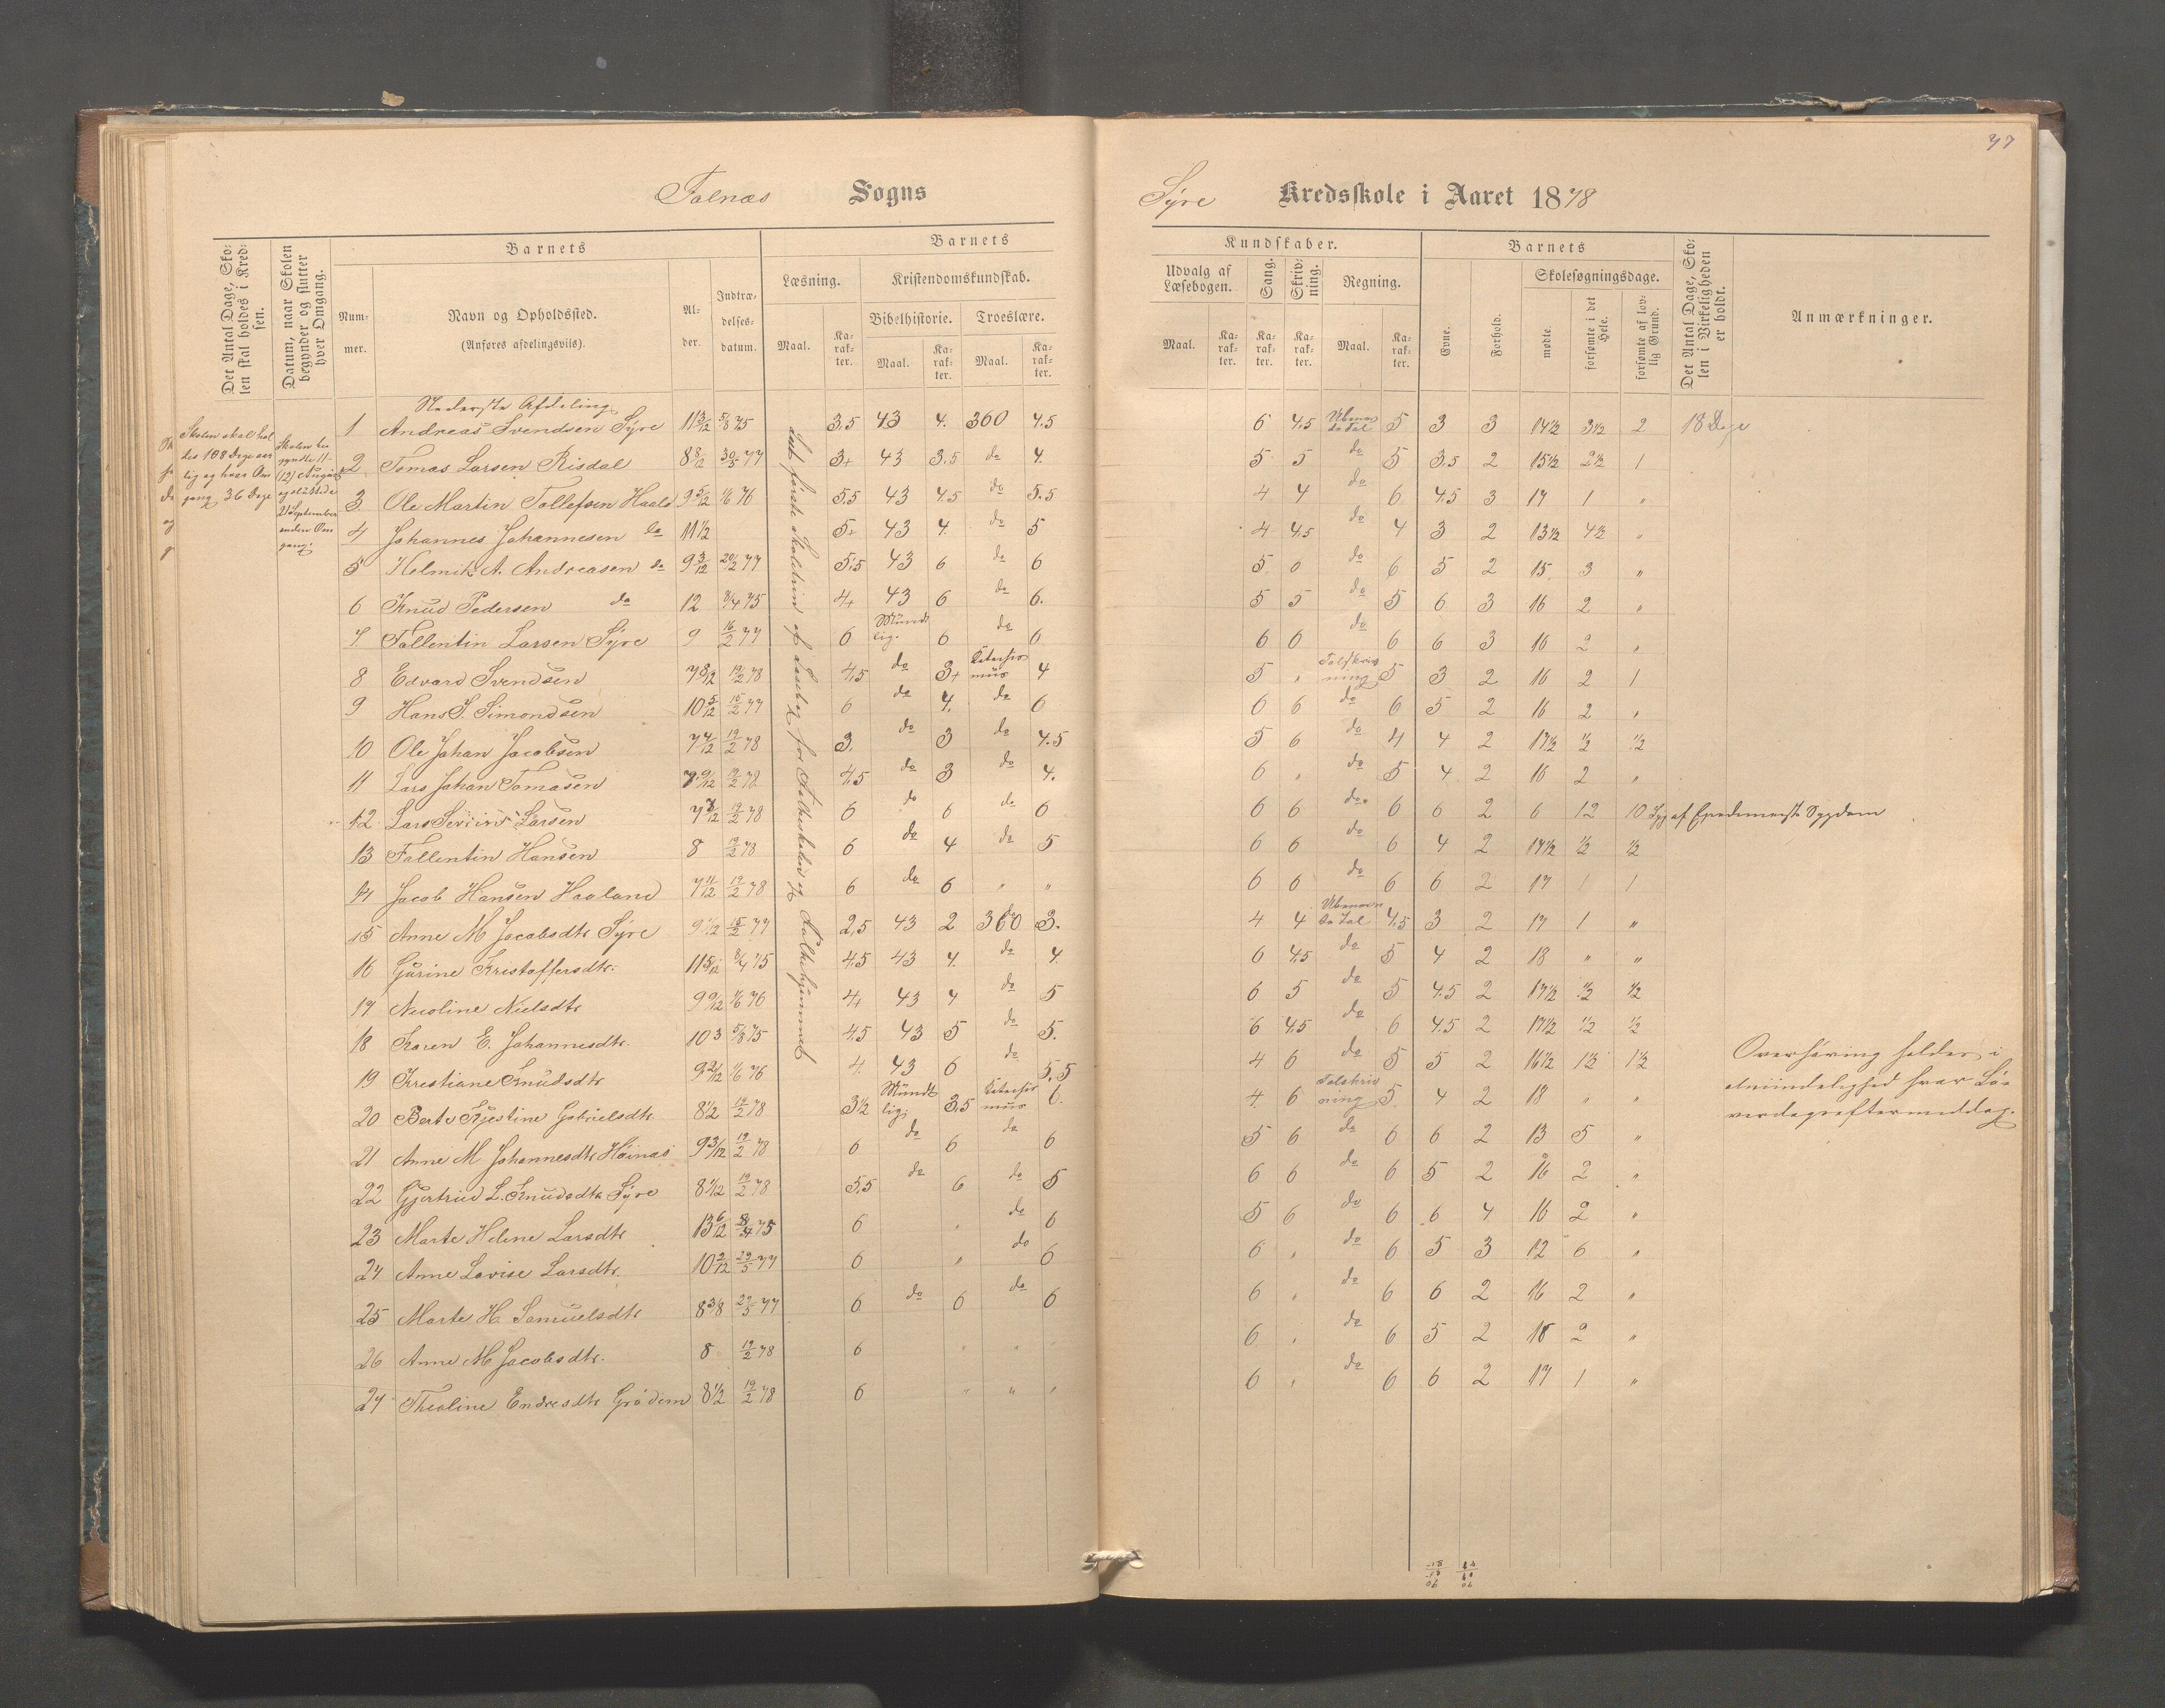 77
Falnæs Sogns
Syre Kredsskole i Aaret 1878
Det Antal Dage, Sko-
len skal holdes i Kred-
sen.
Datum, naar Skolen
begynder og slutter
hver Omgang.
Barnets
Num-
mer.
Navn og Opholdssted.
(Anføres afdelingsviis).
Al-
der.
Indtræ-
delses-
datum.
Barnets
Læsning.
Kristendomskundskab.
Bibelhistorie. Troeslære.
Maal. Ka-
rak-
ter.
Maal. Ka-
rak-
ter.
Maal. Ka-
rak-
ter.
Kundskaber.
Udvalg af
Læsebogen.
Sang.
Skriv-
ning.
Regning.
Maal. Ka-
rak-
ter.
Ka-
rak-
ter.
Ka-
rak-
ter.
Maal. Ka-
rak-
ter.
Barnets
Evne.
Forhold.
Skolesøgningsdage.
mødte.
forsømte i det
Hele.
forsømte af lov-
lig Grund.
Det Antal Dage, Sko-
len i Virkeligheden
er holdt.
Anmærkninger.
Skolen skal hol
des 108 Dage aar
lig og hver Om
gang 36 Dage
Skolen be
gyndte 11-
(12) August
og sluttede
21 September
anden Om
gang.
Lidt første Skoletrin af Læsebog for Folkeskolen og Folkehjemmet
Nederste Afdeling
1 Andreas Svendsen Syre 11 3/12 5/8 75 3,5 43 4. 360 4.5 6 4,5 Ubenævn
de Tal 5 3 3 14½ 3½ 2 18 Dage
2 Tomas Larsen Risdal 8 8/12 30/5 77 3+ 43 3.5 do 4. 5 5 do 5 3,5 2 15½ 2½ 1
3 Ole Martin Tollefsen Haaland 9 5/12 1/6 76 5,5 43 4,5 do 5.5 4 4 do 6 4,5 3 17 1 "
4 Johannes Johannesen do 11½ 5+ 43 4. do 5 4 4,5 do 4 3 2 13½ 4½ "
5 Helmik A. Andreasen do 9 3/12 20/2 77 5,5 43 6 do 6 5 0 do 6 5 2 15 3 "
6 Knud Pedersen do 12 8/4 75 4+ 43 6 do 6. 5 5 do 5 6 3 16 2 "
7. Fallentin Larsen Syre 9 16/2 77 6 Mundt
lig. 6 do 6 6 6 do 6 6 3 16 2 "
8 Edvard Svendsen 7 8/12 19/2 78 4,5 do 3+ Katechis
mus 4 5 " Talskriv
ning 5 3 2 16 2 1
9 Hans S. Simondsen 10 5/12 15/2 77 6 do 4. do 6 6 6 do 6 5 2 16 2 "
10 Ole Johan Jacobsen 7 4/12 19/2 78 3. do 3 do 4.5 5 6 do 4 4 2 17½ ½ ½
11 Lars Johan Tomasen 7 9/12 19/2 78 4,5 do 3 do 4. 6 " do 5 4 2 16 2 "
12 Lars Larsen 19/2 78 6 do 6 do 6 6 6 do 6 6 2 6 12 10 Syg af Epedemeiste Sygdom
13 Fallentin Hansen 8 19/2 78 6 do 4 do 5 6 6 do 6 4 2 17½ ½ ½
14 Jacob Hansen Haaland 7 11/12 19/2 78 6 do 6 " " 6 6 do 6 6 2 17 1 1
15 Anne M Jacobsdtr Syre 9 1/12 15/2 77 2,5 43 2 360 3. 4 4 Ubenævn
de Tal 4,5 3 2 17 1 "
16 Gurine Kristoffersdtr. 11 5/12 8/4 75 4,5 43 4. do 4. 6 4,5 do 5 4 2 18 " "
17 Nicoline Nielsdtr 9 9/12 1/6 76 4+ 43 4 do 5 6 5 do 5 4.5 2 17½ ½ ½
18 Karen E. Johannesdtr. 10 3 5/8 75 4,5 43 5 do 5. 6 4,5 do 6 4.5 2 17½ ½ ½
19 Kristiane Knudsdtr 9 2/12 1/6 76 4. 43 6 do 5,5 4 6 do 5 5 2 16½ 1½ 1½
20 Berte Kjestine Gabrielsdtr. 8½ 19/2 78 3½ Mundt
lig. 3,5 Katechis
mus 6. 4. 6 Talskriv
ning 5. 4 2 18 " "
21 Anne M Johannesdtr Høinæs 9 3/12 19/2 78 6 do 6 do 6 5 6 do 6 6 2 13 5 "
22 Gjertrud L. Knudsdtr Syre 8 1/12 19/2 78 5,5 do 6 do 5 6 6 do 6 5 2 16 2 "
23 Marte Helene Larsdtr 13 6/12 8/4 75 6 " do 6 5 6 do 6 6 4 16 2 "
24 Anne Lovise Larsdtr. 10 2/12 29/5 77 6 " do 6 6 " do 6 5 3 12 6 "
25 Marte H. Samuelsdtr 8 3/8 29/5 77 6 do 6 do 6 6 " do 6 6 2 16 2 "
26 Anne M Jacobsdtr. 8 19/2 78 6 " " " 6 " do 6 5 2 16 2 "
27 Theoline Endresdtr Grødem 8½ 19/2 78 6 " " " 6 " do 6 6 2 17 1 "
Overhøring holdes i
almindelighed hver Lø-
verdagseftermiddag.